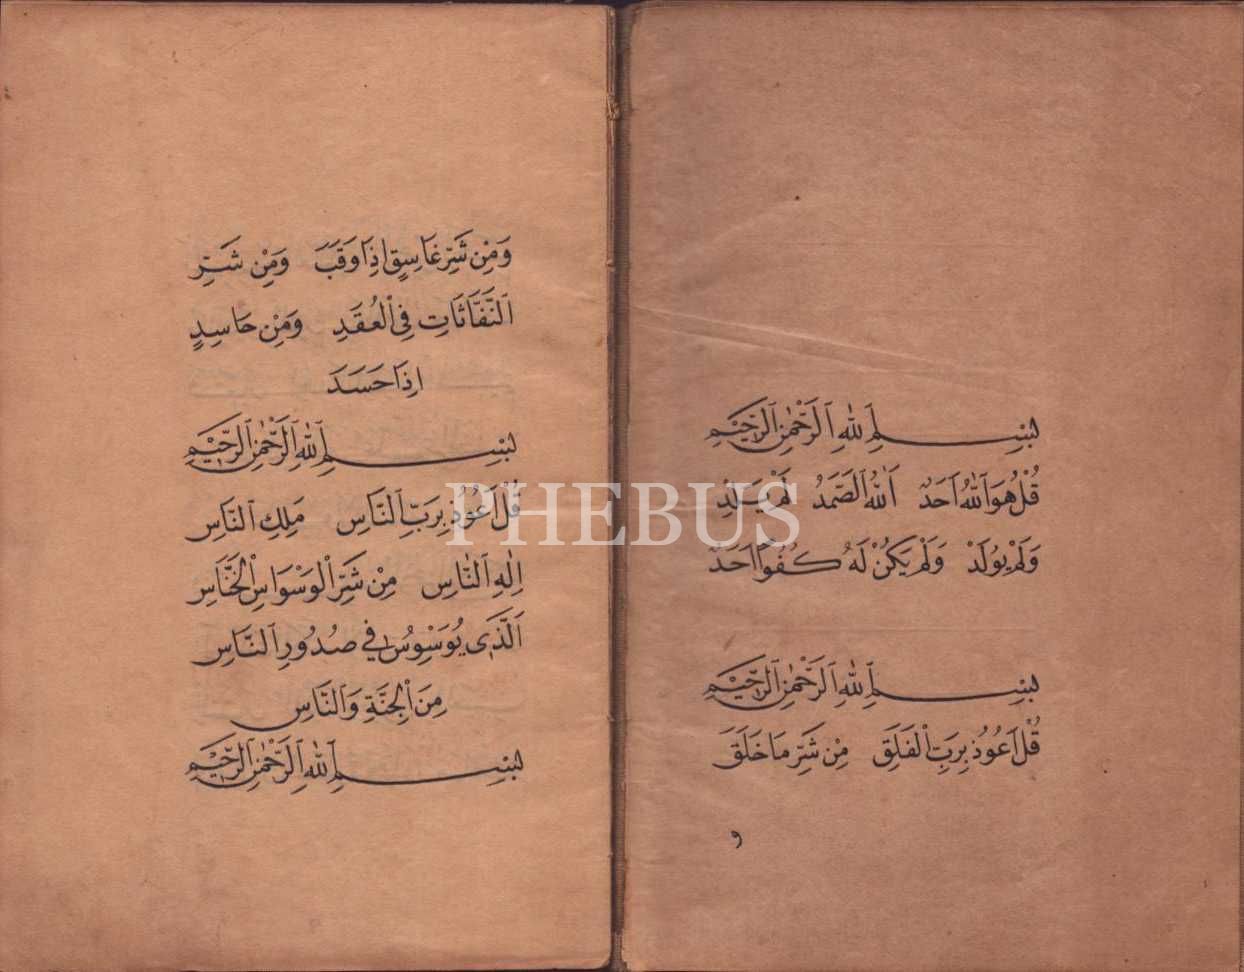 بِسْمِ اللهِ الرَّحْمٰنِ الرَّحِيْمِ
قُلْ هُوَ اللهُ اَحَدٌ اَللهُ الصَّمَدُ لَمْ يَلِدْ
وَلَمْ يُولَدْ وَلَمْ يَكُنْ لَهُ كُفُوًا اَحَدٌ
بِسْمِ اللهِ الرَّحْمٰنِ الرَّحِيْمِ
قُلْ اَعُوذُ بِرَبِّ الْفَلَقِ مِنْ شَرِّ مَا خَلَقَ
و
وَمِنْ شَرِّ غَاسِقٍ اِذَا وَقَبَ وَمِنْ شَرِّ
النَّفَّاثَاتِ فِى الْعُقَدِ وَمِنْ حَاسِدٍ
اِذَا حَسَدَ
بِسْمِ اللهِ الرَّحْمٰنِ الرَّحِيْمِ
قُلْ اَعُوذُ بِرَبِّ النَّاسِ مَلِكِ النَّاسِ
اِلٰهِ النَّاسِ مِنْ شَرِّ الْوَسْوَاسِ الْخَنَّاسِ
اَلَّذِى يُوَسْوِسُ فِى صُدُورِ النَّاسِ
مِنَ الْجِنَّةِ وَالنَّاسِ
بِسْمِ اللهِ الرَّحْمٰنِ الرَّحِيْمِ
PHEBUS